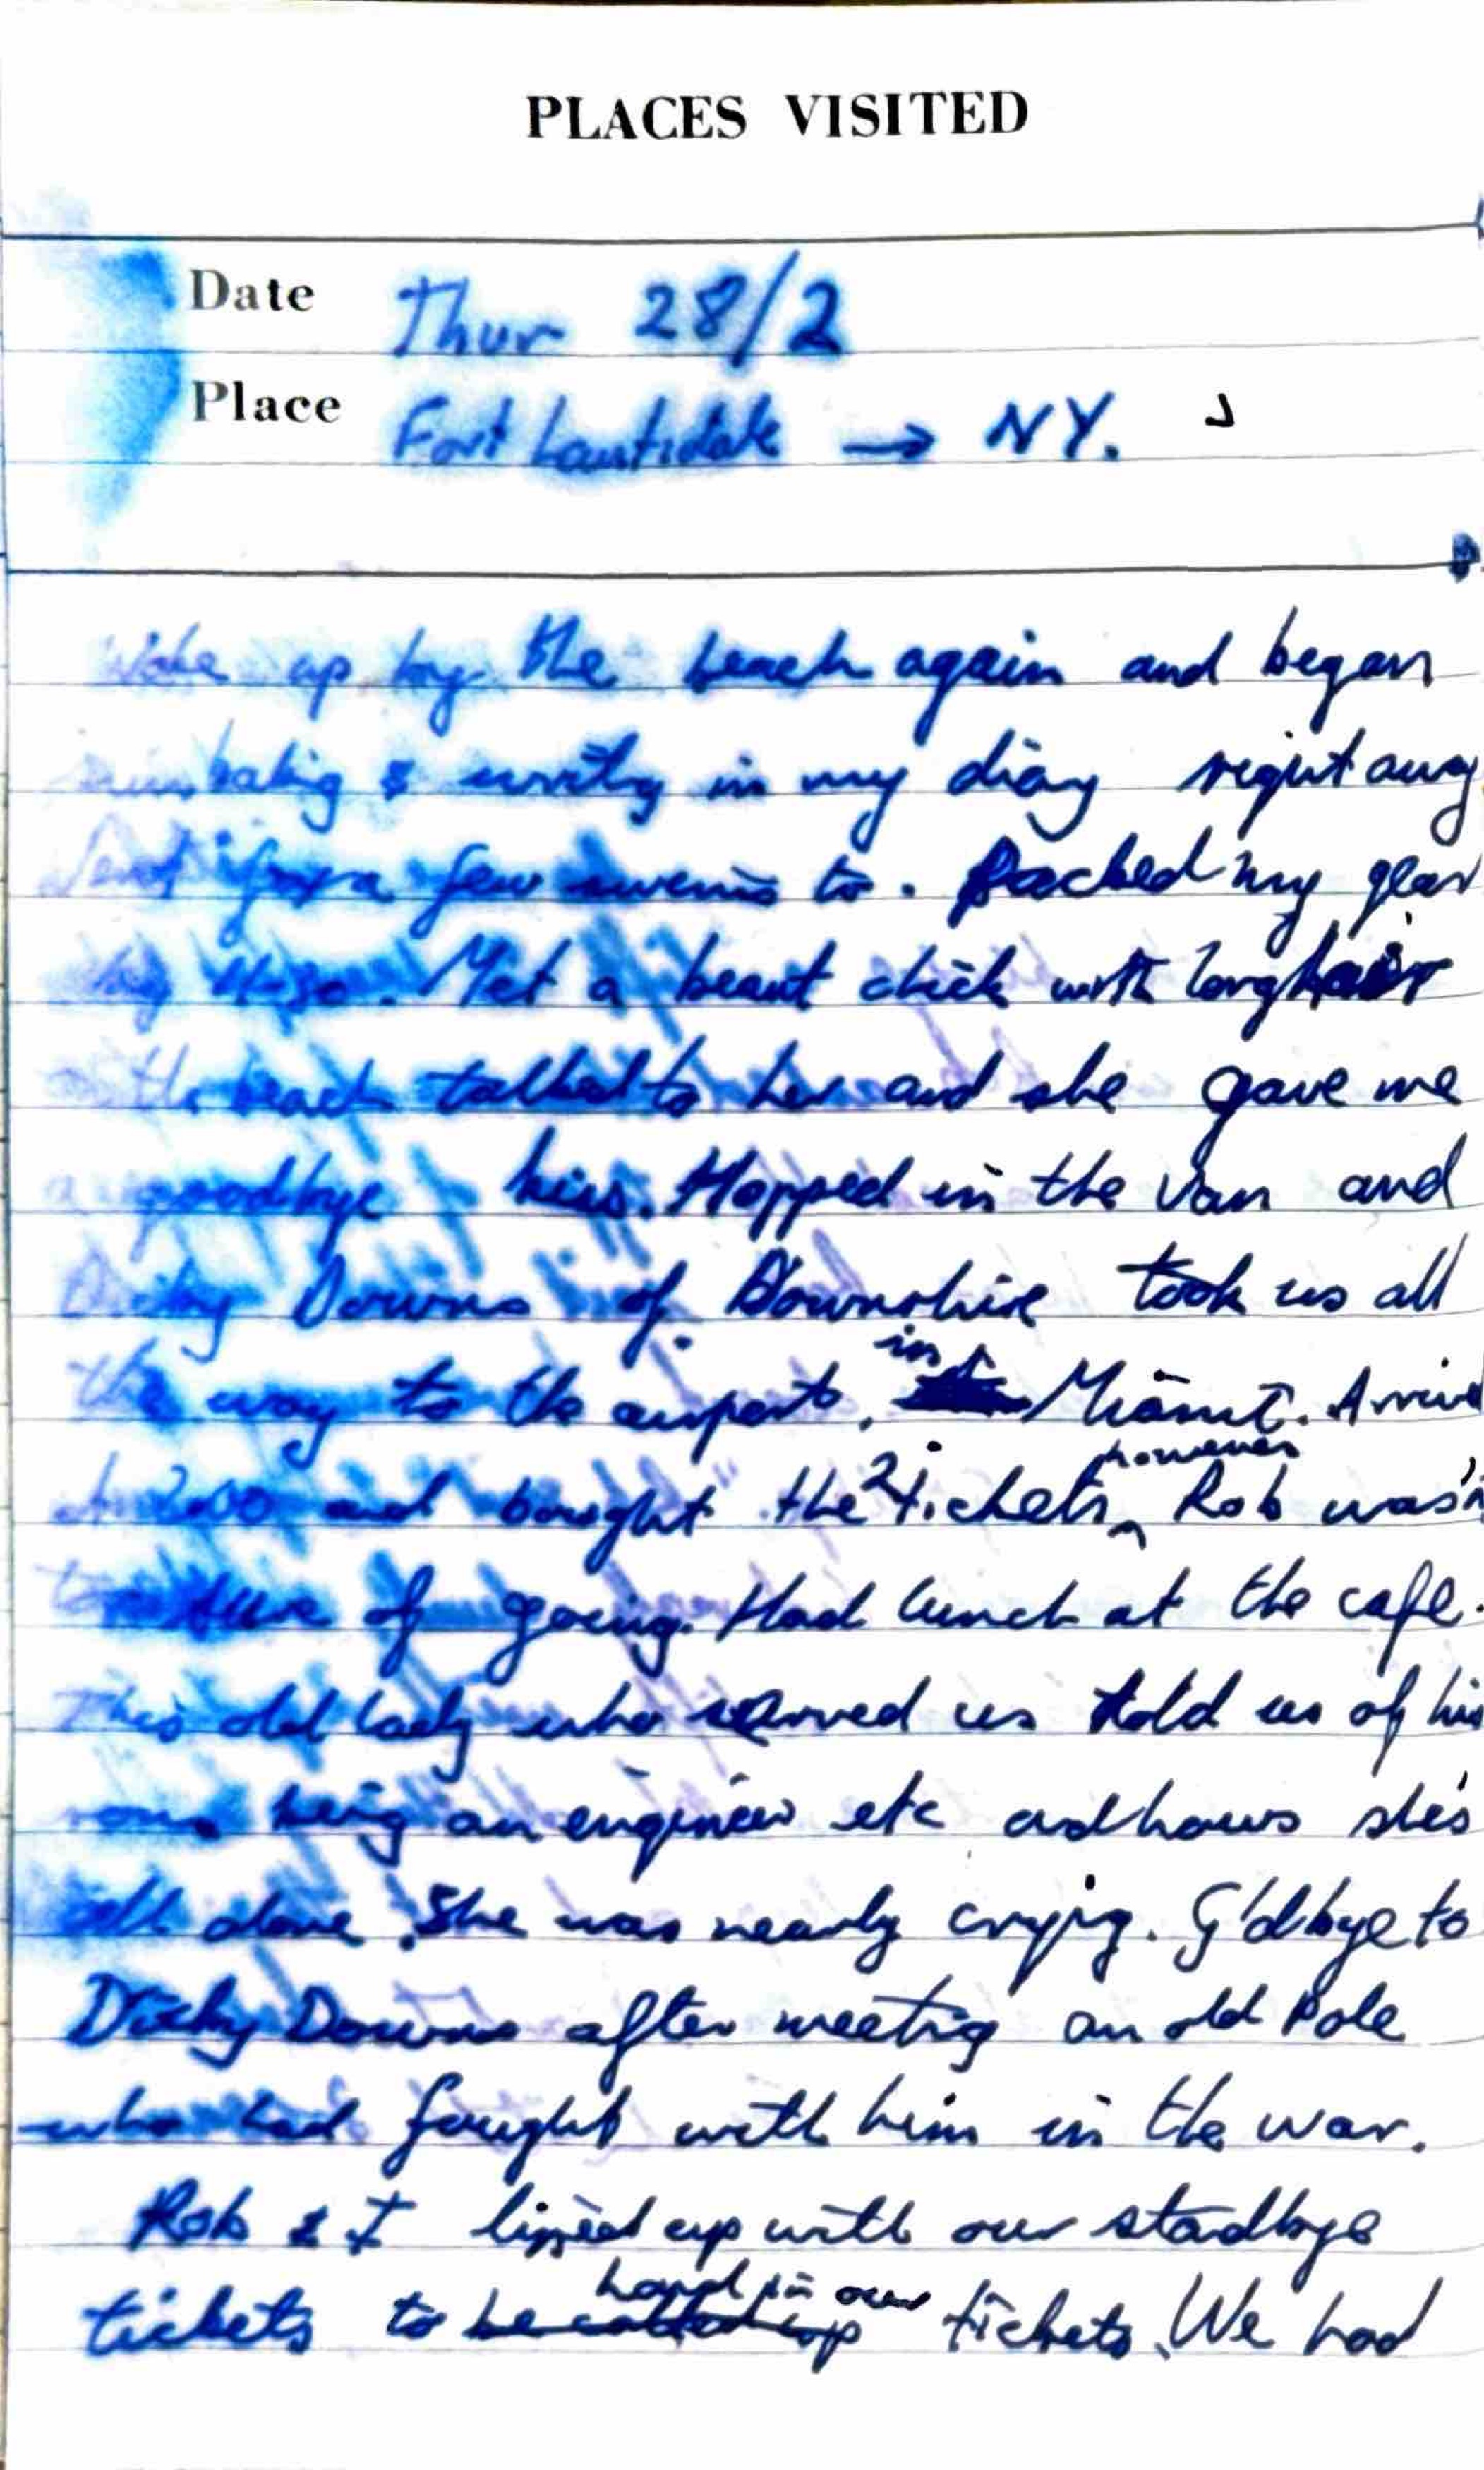 PLACES VISITED
Date Thur 28/2
Place Fort Lautidale → NY.
Woke up by the beach again and began
sunbaking & writing in my diary right away
Went for a few swems to. Packed my gear
by 11.30. Met a beaut chick with long hair
on the beach talked to her and she gave me
a goodbye kiss. Hopped in the van and
Dicky Downs of Downshire took us all
the way to the airport, in Miami. Arrived
and bought the 2 tickets, however Rob wasn't
too sure of going. Had lunch at the cafe.
This old lady who served us told us of his
sons being an engineer etc and hows she's
all alone. She was nearly crying. G'dbye to
Dicky Downs after meeting an old Pole
who had fought with him in the war.
Rob & I lined up with our standbye
tickets to be called up hand in our tickets. We had